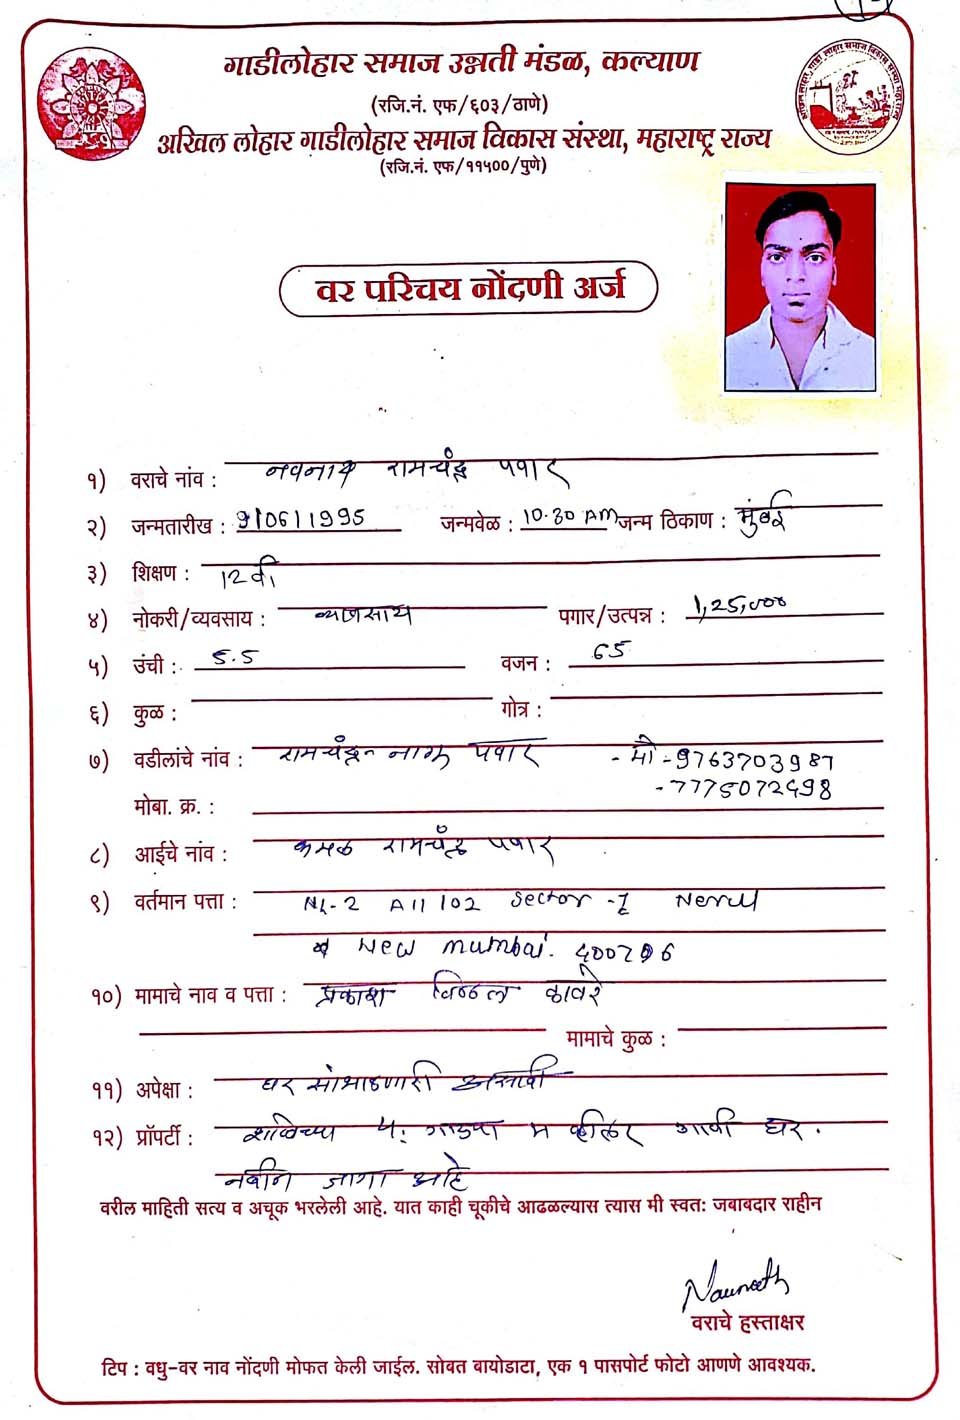 गाडीलोहार समाज उन्नती मंडळ, कल्याण
(रजि.नं. एफ/६०३/ठाणे)
अखिल लोहार गाडीलोहार समाज विकास संस्था, महाराष्ट्र राज्य
(रजि.नं. एफ/११५००/पुणे)
वर परिचय नोंदणी अर्ज
१) वराचे नांव : नवनाथ रामचंद्र पवार
२) जन्मतारीख : 9/06/1995 जन्मवेळ : 10.30 AM जन्म ठिकाण : मुंबई
३) शिक्षण : 12वी
४) नोकरी/व्यवसाय : व्यवसाय पगार/उत्पन्न : 1,25,000
५) उंची : 5.5 वजन : 65
६) कुळ : गोत्र :
७) वडीलांचे नांव : रामचंद्र नामू पवार - मो - 9763703987
मोबा. क्र. : - 7775072598
८) आईचे नांव : कमळ रामचंद्र पवार
९) वर्तमान पत्ता : NL-2 A11 102 Sector - Nerul
New Mumbai. 400706
१०) मामाचे नाव व पत्ता : प्रकाश विठ्ठल कावरे
मामाचे कुळ :
११) अपेक्षा : घर सांभाळणारी असावी
१२) प्रॉपर्टी : गावी घर.
नवीन जागा आहे
वरील माहिती सत्य व अचूक भरलेली आहे. यात काही चूकीचे आढळल्यास त्यास मी स्वतः जबाबदार राहीन
Navneeth
वराचे हस्ताक्षर
टिप : वधु-वर नाव नोंदणी मोफत केली जाईल. सोबत बायोडाटा, एक १ पासपोर्ट फोटो आणणे आवश्यक.